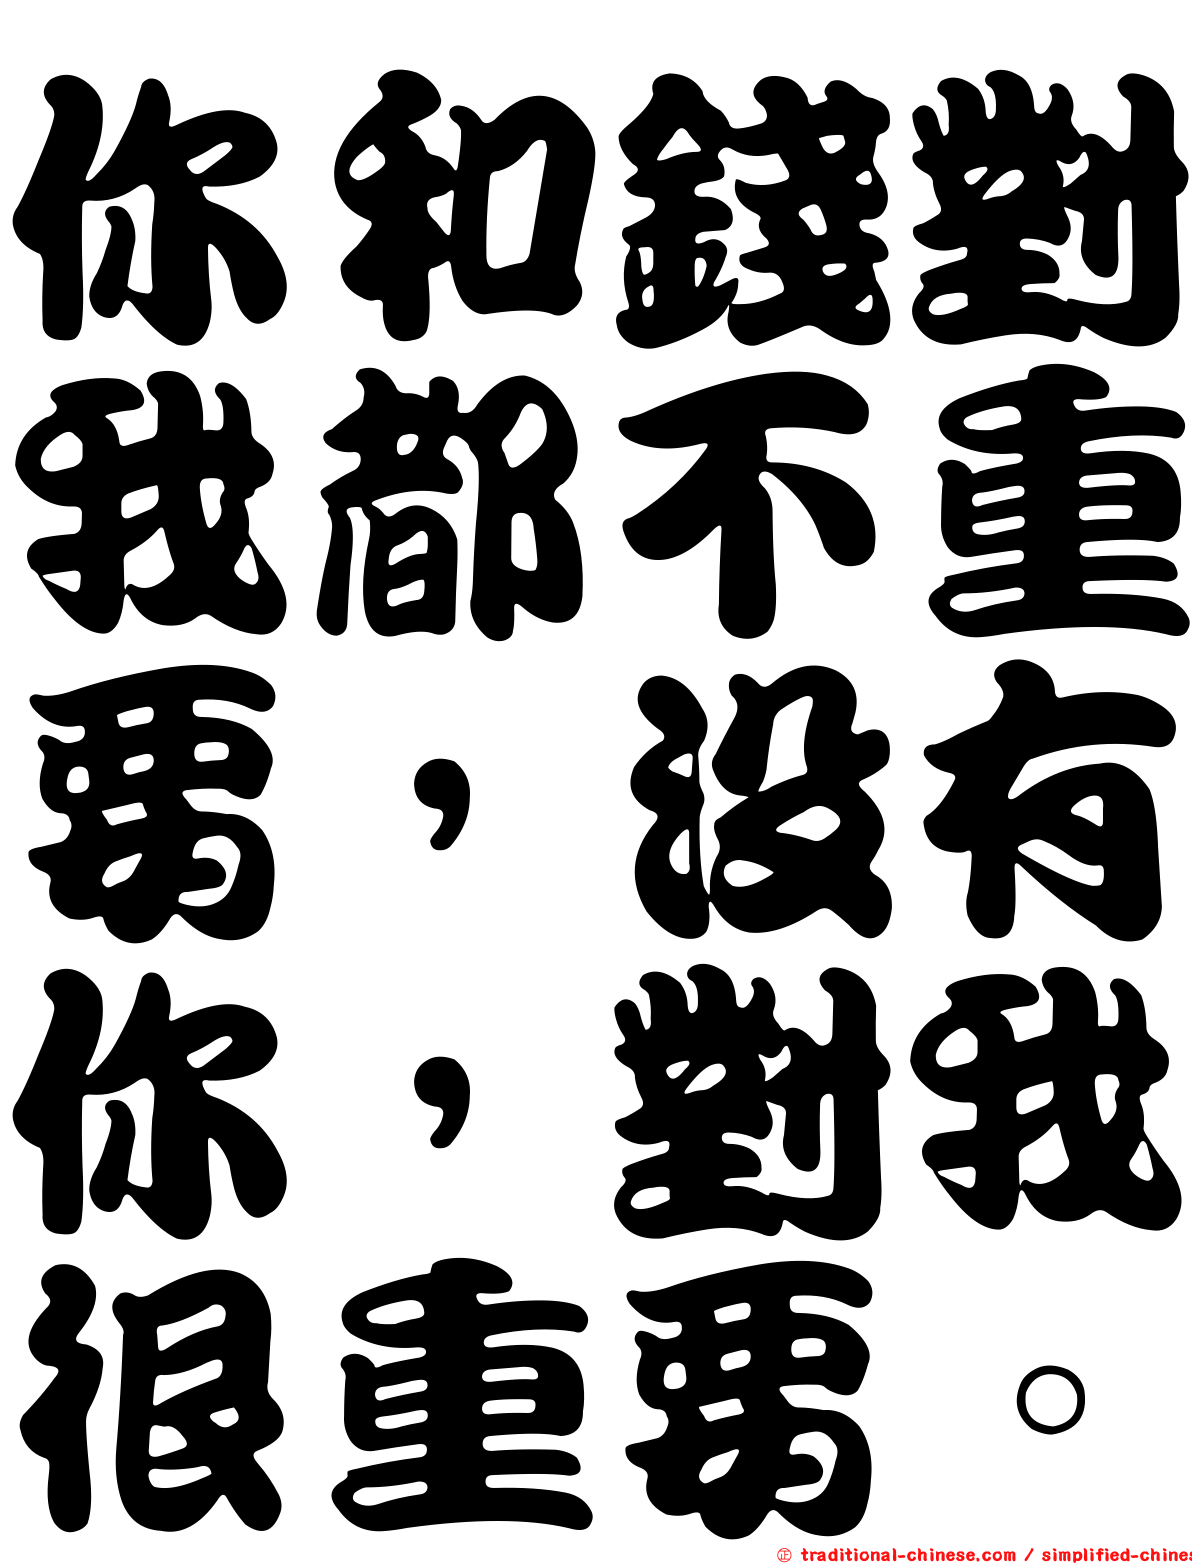 你和錢對
我都不重
要，沒有
你，對我
很重要。
㊣ traditional-chinese.com / simplified-chines